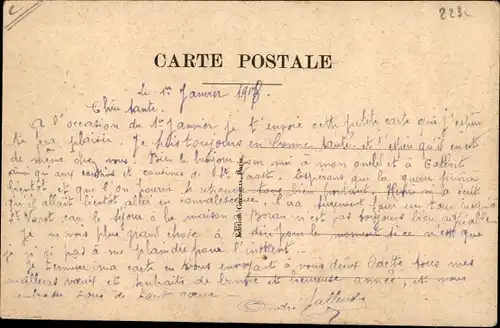 223
CARTE POSTALE
Le 1er Janvier 1918.
Chère tante.
A l'occasion du 1er Janvier je t'envoie cette petite carte qui j'espère
te fera plaisir. Je suis toujours en bonne santé et j'espère qu'il en est
de même chez vous. bonjour mon oncle et à
ainsi qu'aux cousins et cousines de St Vaast. Espérons que la guerre finira
bientôt et que l'on pourra se tous bien portant. Henri m'a écrit
qu'il allait bientôt aller en convalescence, il ira surement faire un tour
St Vaast car le séjour à la maison Boran n'est pas toujours bien agréable
Je ne vois plus grand chose à dire pour le moment si ce n'est que
je n'ai pas à me plaindre pour l'instant.
Je termine ma carte en vous envoyant à vous deux Odette tous mes
meilleurs vœux et souhaits de bonne et heureuse année, et vous
tous de tout cœur
André